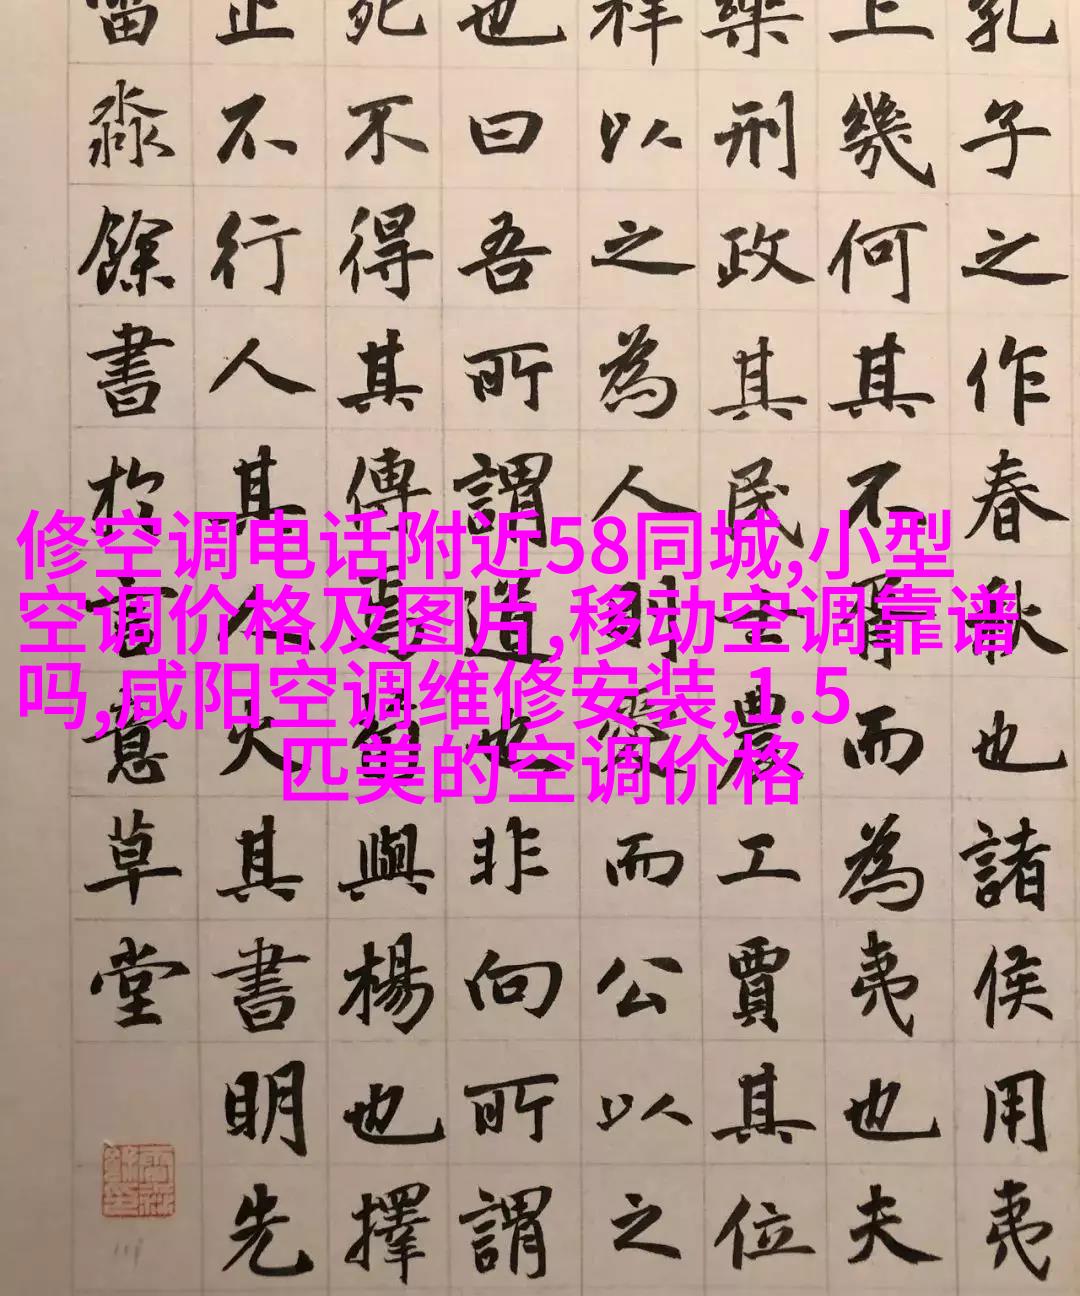 修空调电话附近58同城,小型
空调价格及图片,移动空调靠谱
吗,咸阳空调维修安装,1.5
匹美的空调价格
孔子之作春秋也諸侯用夷
上幾何其不胥而為夷也夫
樂刑政其民士農工賈其位
祥以之為人則愛而公以之
也曰吾所謂道也非向所謂
死不得其傳焉荀與楊也擇
止不行人其人火其書明先
淼餘書於意草堂